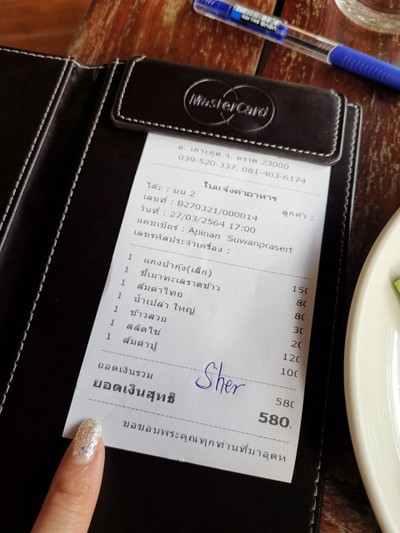 MasterCard
ต. เกาะกูด จ. ตราด 23000
039-520-337, 081-403-6174
ใบแจ้งค่าอาหาร
โต๊ะ : บน 2 ลูกค้า :
เลขที่ : B270321/000014
วันที่ : 27/03/2564 17:00
แคชเชียร์ : Apinan Suwanprasert
เลขรหัสประจำเครื่อง :
1 แกงป่ากุ้ง(เล็ก) 150
1 ขี้เมาทะเลราดข้าว 80
1 ส้มตำไทย 80
1 น้ำเปล่า ใหญ่ 30
1 ข้าวสวย 20
1 สลัดไข่ 120
1 ส้มตำปู 100
ยอดเงินรวม 580
ยอดเงินสุทธิ 580.
Sher
ขอขอบพระคุณทุกท่านที่มาอุดห